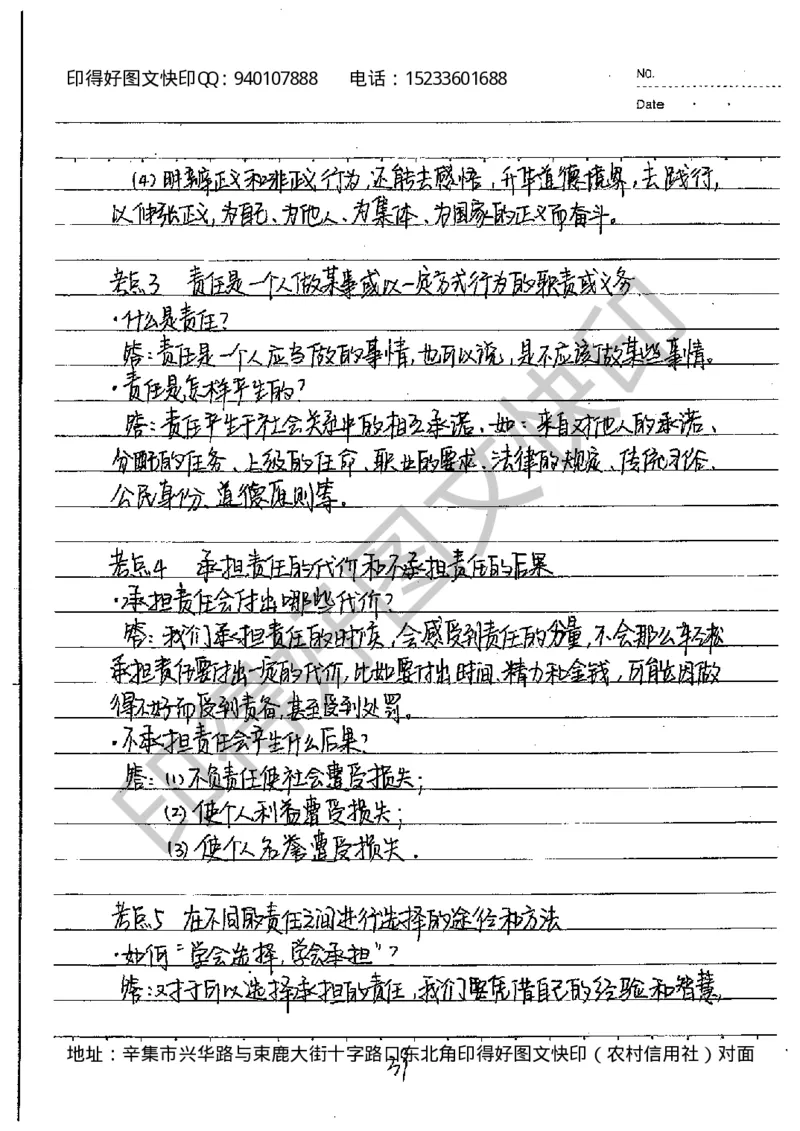 印得好图文快印QQ：940107888 电话：15233601688
NO.
Date
(4)明辨正义和非正义行为,还能去感悟,升华道德境界,去践行,
以伸张正义,为自己、为他人、为集体、为国家的正义而奋斗。
考点3 责任是一个人做某事或以一定方式行为的职责或义务
·什么是责任?
答:责任是一个人应当做的事情,也可以说,是不应该做某些事情。
·责任是怎样产生的?
答:责任产生于社会关系中的相互承诺。如:来自对他人的承诺、
分配的任务、上级的任命、职业的要求、法律的规定、传统习俗、
公民身份、道德原则等。
考点4 承担责任的代价和不承担责任的后果
·承担责任会付出哪些代价?
答:我们承担责任的时候,会感受到责任的分量,不会那么轻松
承担责任要付出一定的代价,比如要付出时间、精力和金钱,可能因做
得不好而受到责备,甚至受到处罚。
·不承担责任会产生什么后果?
答:(1)不负责任使社会遭受损失;
(2)使个人利益遭受损失;
(3)使个人名誉遭受损失.
考点5 在不同的责任之间进行选择的途径和方法
·如何"学会选择,学会承担"?
答:对于可以选择承担的责任,我们要凭借自己的经验和智慧,
地址：辛集市兴华路与束鹿大街十字路口东北角印得好图文快印（农村信用社）对面
印得好图文快印